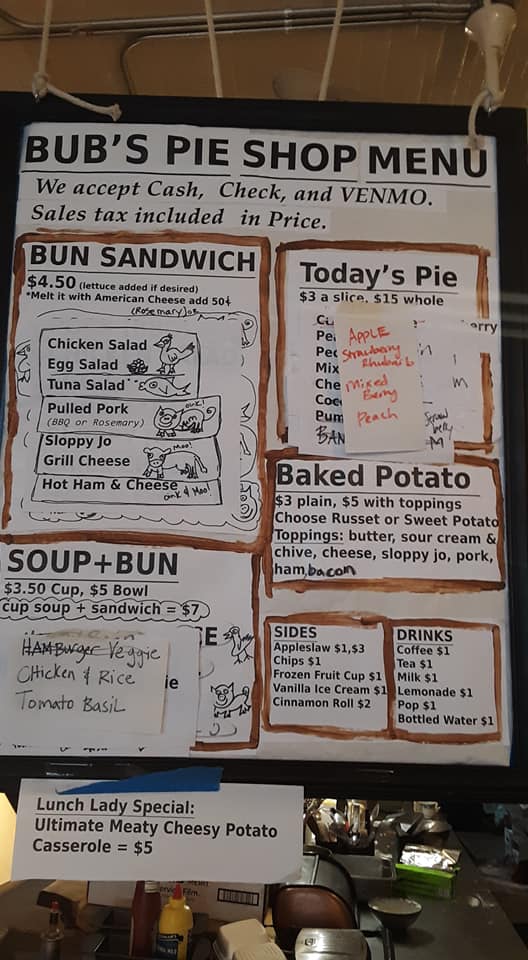 BUB'S PIE SHOP MENU
We accept Cash, Check, and VENMO.
Sales tax included in Price.
BUN SANDWICH
$4.50 (lettuce added if desired)
*Melt it with American Cheese add 50¢
(Rosemary)
Chicken Salad
Egg Salad
Tuna Salad
Pulled Pork
(BBQ or Rosemary)
oink!
Sloppy Jo
Moo!
Grill Cheese
Hot Ham & Cheese
oink & Moo!
Today's Pie
$3 a slice, $15 whole
APPLE
Strawberry
Rhubarb
Mixed
Berry
Peach
Baked Potato
$3 plain, $5 with toppings
Choose Russet or Sweet Potato
Toppings: butter, sour cream &
chive, cheese, sloppy jo, pork,
ham, bacon
SOUP+BUN
$3.50 Cup, $5 Bowl
cup soup + sandwich = $7
HAMBurger Veggie
CHicken & Rice
Tomato BasiL
SIDES
Appleslaw $1,$3
Chips $1
Frozen Fruit Cup $1
Vanilla Ice Cream $1
Cinnamon Roll $2
DRINKS
Coffee $1
Tea $1
Milk $1
Lemonade $1
Pop $1
Bottled Water $1
Lunch Lady Special:
Ultimate Meaty Cheesy Potato
Casserole = $5